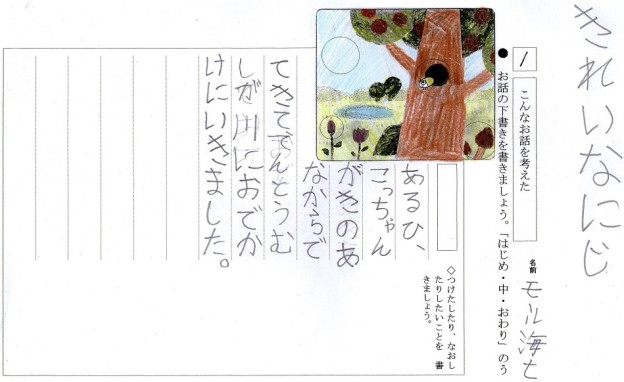 きれいなにじ
名前 モル海
● お話の下書きを書きましょう。「はじめ・中・おわり」のう
1 こんなお話を考えた
◇つけたしたり、なおし
たりしたいことを 書
きましょう。
あるひ、
こっちゃん
がきのあ
なからで
てきてでんとうむ
しが川におでか
けにいきました。